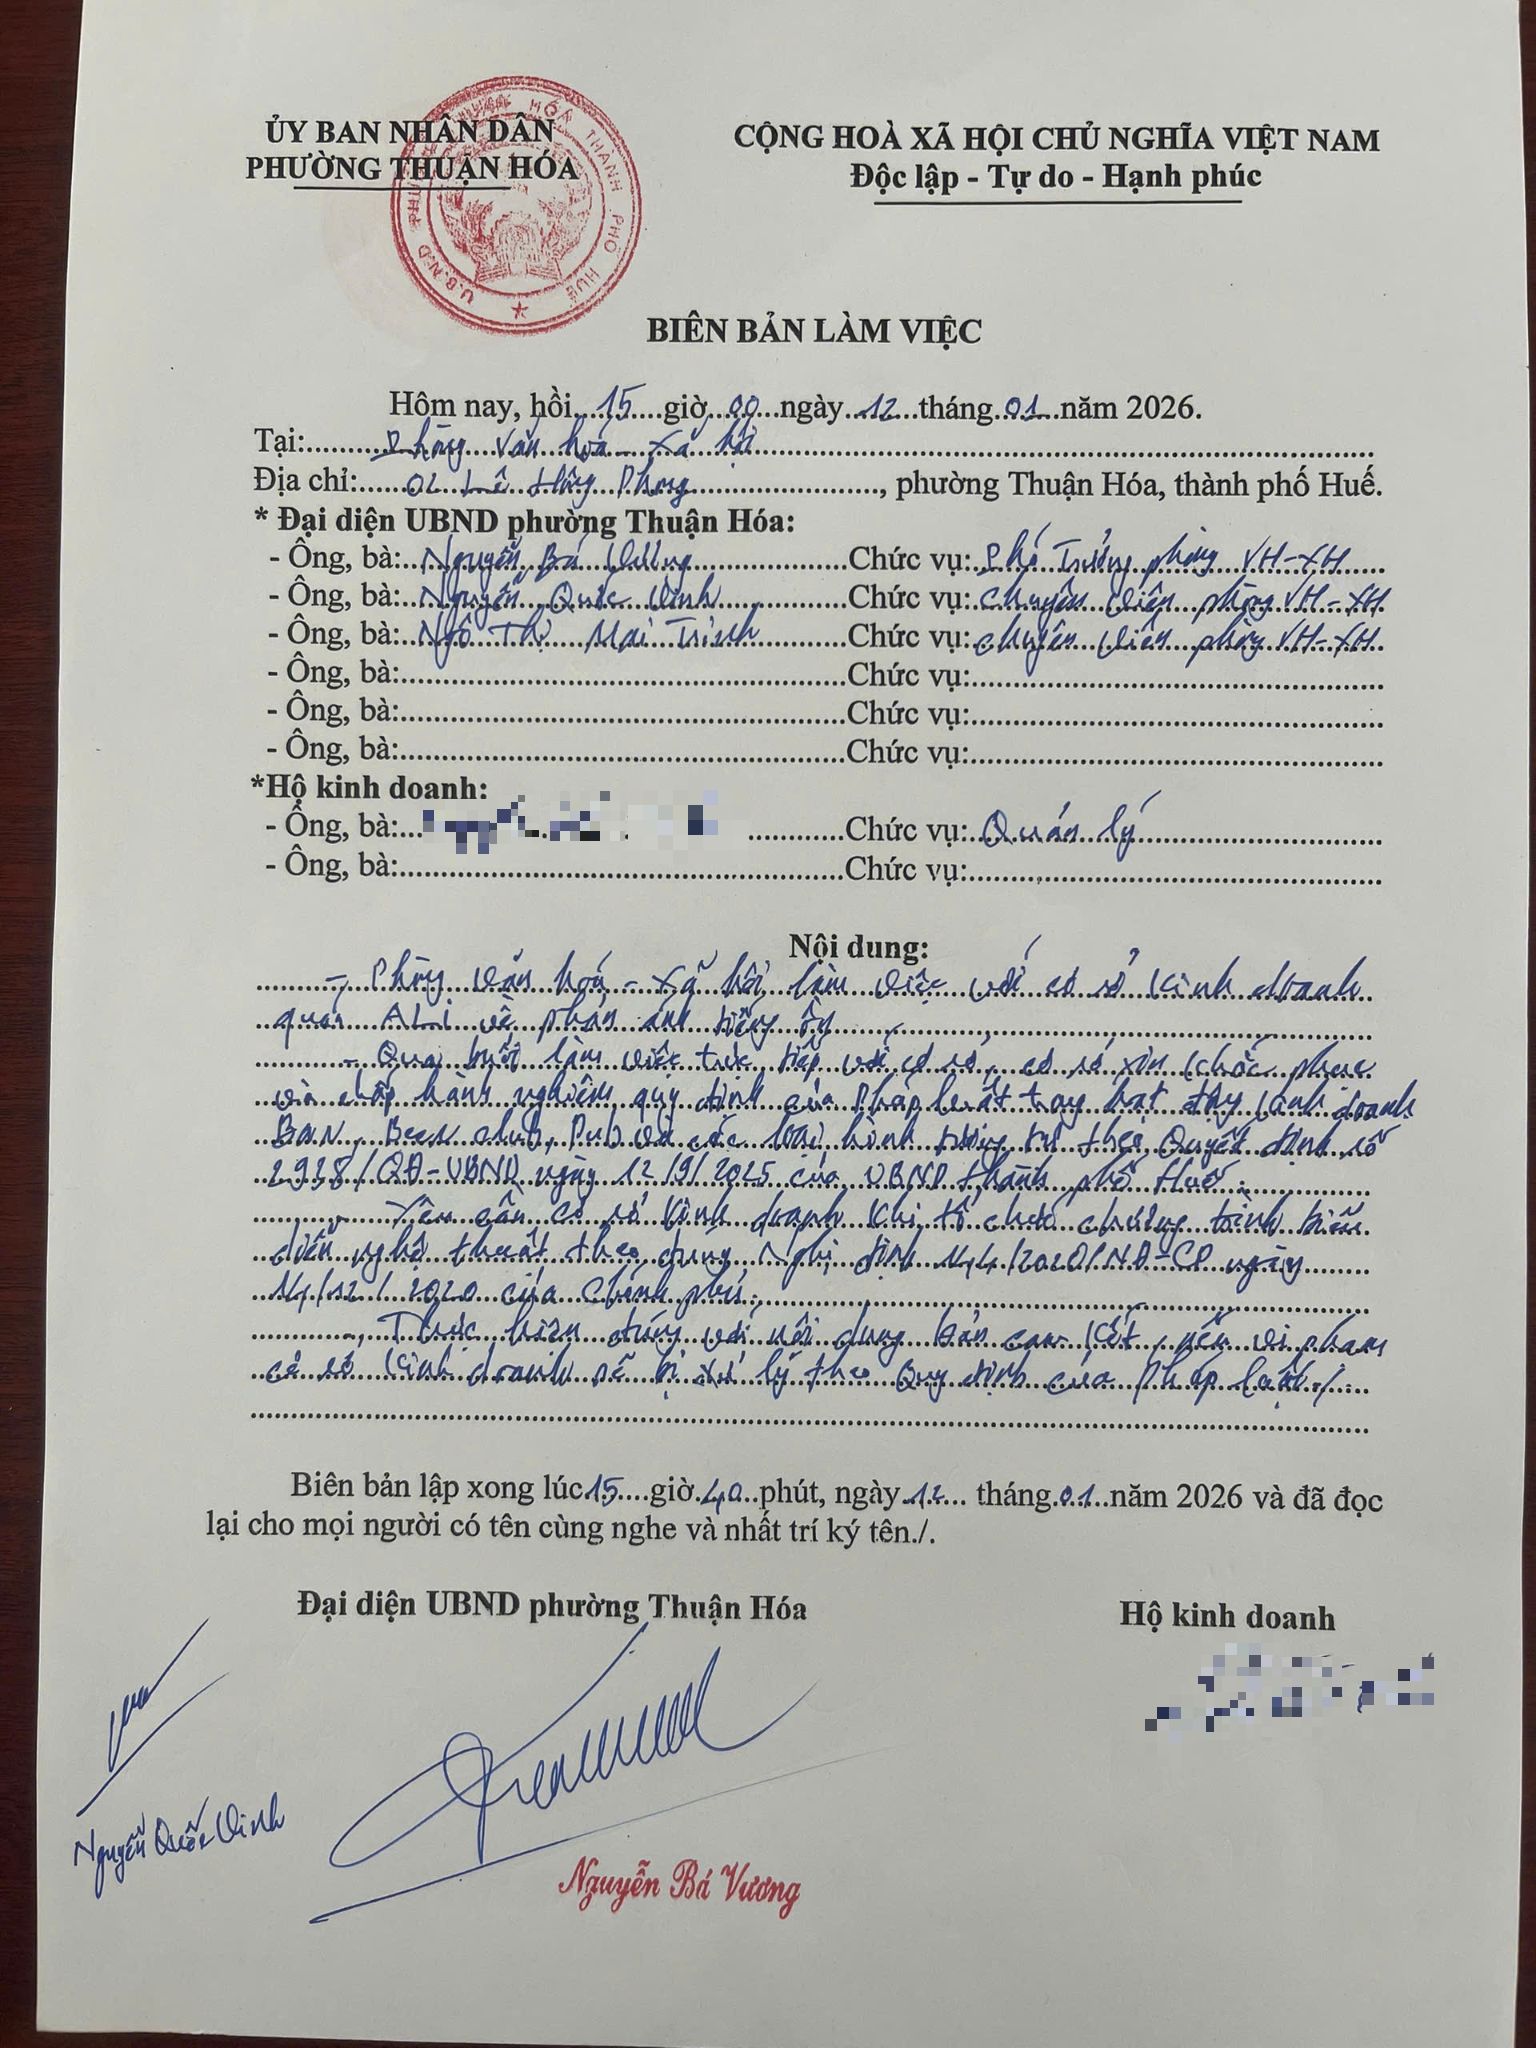 ỦY BAN NHÂN DÂN
PHƯỜNG THUẬN HÓA
CỘNG HOÀ XÃ HỘI CHỦ NGHĨA VIỆT NAM
Độc lập - Tự do - Hạnh phúc
U.B.N.D THUẬN HÓA THÀNH PHỐ HUẾ
BIÊN BẢN LÀM VIỆC
Hôm nay, hồi 15 giờ 00 ngày 12 tháng 01 năm 2026.
Tại: Phòng Văn hoá - Xã hội
Địa chỉ: 02 Lê Hồng Phong, phường Thuận Hóa, thành phố Huế.
* Đại diện UBND phường Thuận Hóa:
- Ông, bà: Nguyễn Bá Vương Chức vụ: Phó Trưởng phòng VH-XH
- Ông, bà: Nguyễn Quốc Vinh Chức vụ: Chuyên viên phòng VH-XH
- Ông, bà: Ngô Thị Mai Trinh Chức vụ: chuyên viên phòng VH-XH
- Ông, bà: Chức vụ:
- Ông, bà: Chức vụ:
- Ông, bà: Chức vụ:
*Hộ kinh doanh:
- Ông, bà: Chức vụ: Quản lý
- Ông, bà: Chức vụ:
Nội dung:
- Phòng Văn hoá - Xã hội làm việc với cơ sở kinh doanh
quán ALi về phản ánh tiếng ồn
- Qua buổi làm việc trực tiếp với cơ sở, cơ sở xin khắc phục
và chấp hành nghiêm quy định của Pháp luật trong hoạt động kinh doanh
Bar, Beer club, Pub và các loại hình tương tự theo Quyết định số
2938/QĐ-UBND ngày 12/9/2025 của UBND thành phố Huế.
- Yêu cầu cơ sở kinh doanh khi tổ chức chương trình biểu
diễn nghệ thuật theo đúng Nghị định 144/2020/NĐ-CP ngày
14/12/2020 của Chính phủ.
- Thực hiện đúng với nội dung bản cam kết, nếu vi phạm
cơ sở kinh doanh sẽ bị xử lý theo Quy định của Pháp luật./.
Biên bản lập xong lúc 15 giờ 40 phút, ngày 12 tháng 01 năm 2026 và đã đọc
lại cho mọi người có tên cùng nghe và nhất trí ký tên./.
Đại diện UBND phường Thuận Hóa
Hộ kinh doanh
Nguyễn Quốc Vinh
Nguyễn Bá Vương